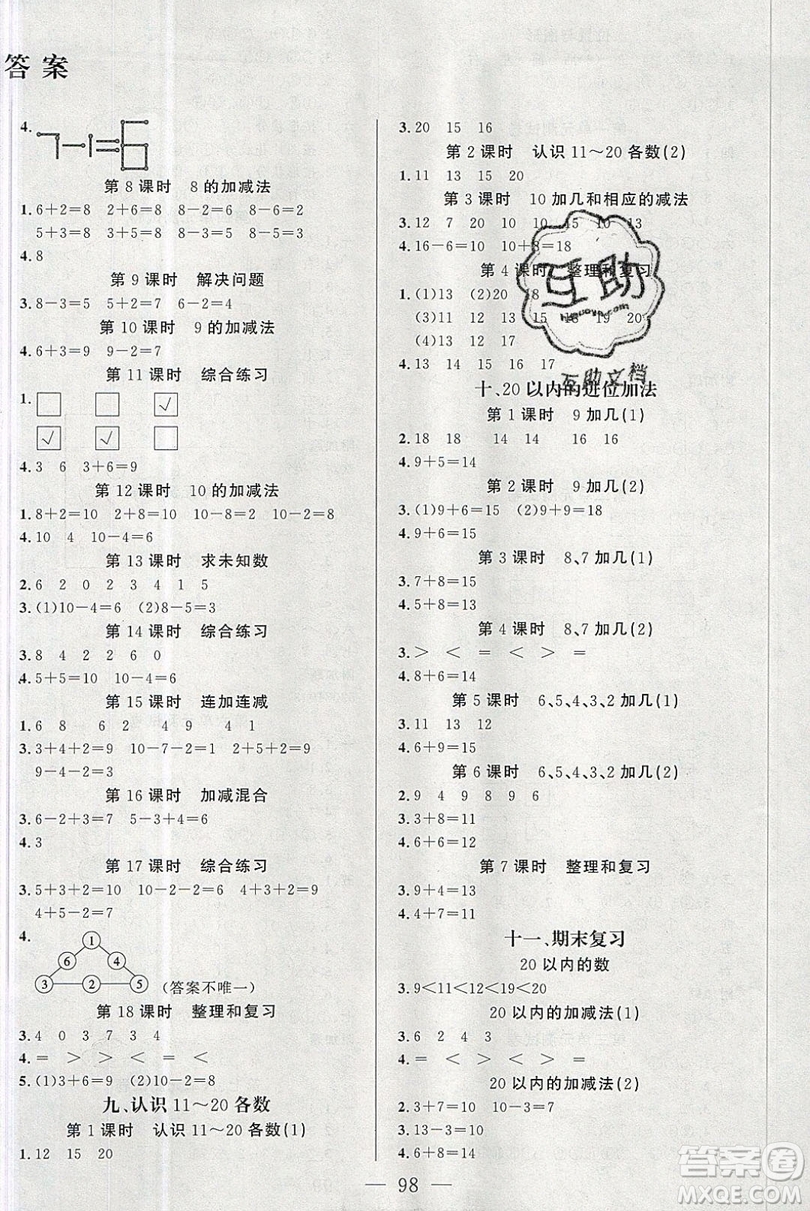 答案
4.
第8课时 8的加减法
1.6+2=8 2+6=8 8-2=6 8-6=2
5+3=8 3+5=8 8-3=5 8-5=3
4.8
第9课时 解决问题
3.8-3=5 5+2=7 6-2=4
第10课时 9的加减法
4.6+3=9 9-2=7
第11课时 综合练习
1.
4.3 6 3+6=9
第12课时 10的加减法
1.8+2=10 2+8=10 10-8=2 10-2=8
4.10 4 10-4=6
第13课时 求未知数
2.6 2 0 2 3 4 1 5
3.(1)10-4=6 (2)8-5=3
第14课时 综合练习
3.8 4 2 2 6 0
4.5+5=10 10-4=6
第15课时 连加连减
1.6 8 6 2 4 9 4 1
3.3+4+2=9 10-7-2=1 2+5+2=9
9-4-2=3
第16课时 加减混合
3.6-2+3=7 5-3+4=6
4.3
第17课时 综合练习
3.5+3+2=10 10-5-3=2 6-3+2=5
4+5-2=7
4.
1
6 4
3 2 5
(答案不唯一)
第18课时 整理和复习
3.4 0 3 7 3 4
4.= > > < = <
5.(1)3+6=9 (2)10-2=8
九、认识11～20各数
第1课时 认识11～20各数(1)
1.12 15 20
3.20 15 16
第2课时 认识11～20各数(2)
1.11 13 15 20
第3课时 10加几和相应的减法
3.12 7 20 10 10 13 10 5
4.16-6=10 10+8=18
第4课时 整理和复习
1.(1)13 (2)20 18
(3)11 12 13 16 18 19 20
4.13 14 15 17
十、20以内的进位加法
第1课时 9加几(1)
2.18 18 14 14 16 16
4.9+5=14
第2课时 9加几(2)
3.(1)9+6=15 (2)9+9=18
第3课时 8、7加几(1)
3.7+8=15
4.8+6=14
第4课时 8、7加几(2)
3.> > < = = >
4.8+6=14
第5课时 6、5、4、3、2加几(1)
3.11 13 12
4.6+6=12
第6课时 6、5、4、3、2加几(2)
2.9 4 9 8 9 6
3.3+8=11
4.8+3=11
第7课时 整理和复习
3.9+4=13
4.8+6=14
十一、期末复习
20以内的数
3.9<11<12<19<20
20以内的加减法(1)
3.6 2 4 3
4.= > < > < >
20以内的加减法(2)
3.13-3=10
4.8+6=14
98
互助
互助文档
答案圈
MXQE.COM